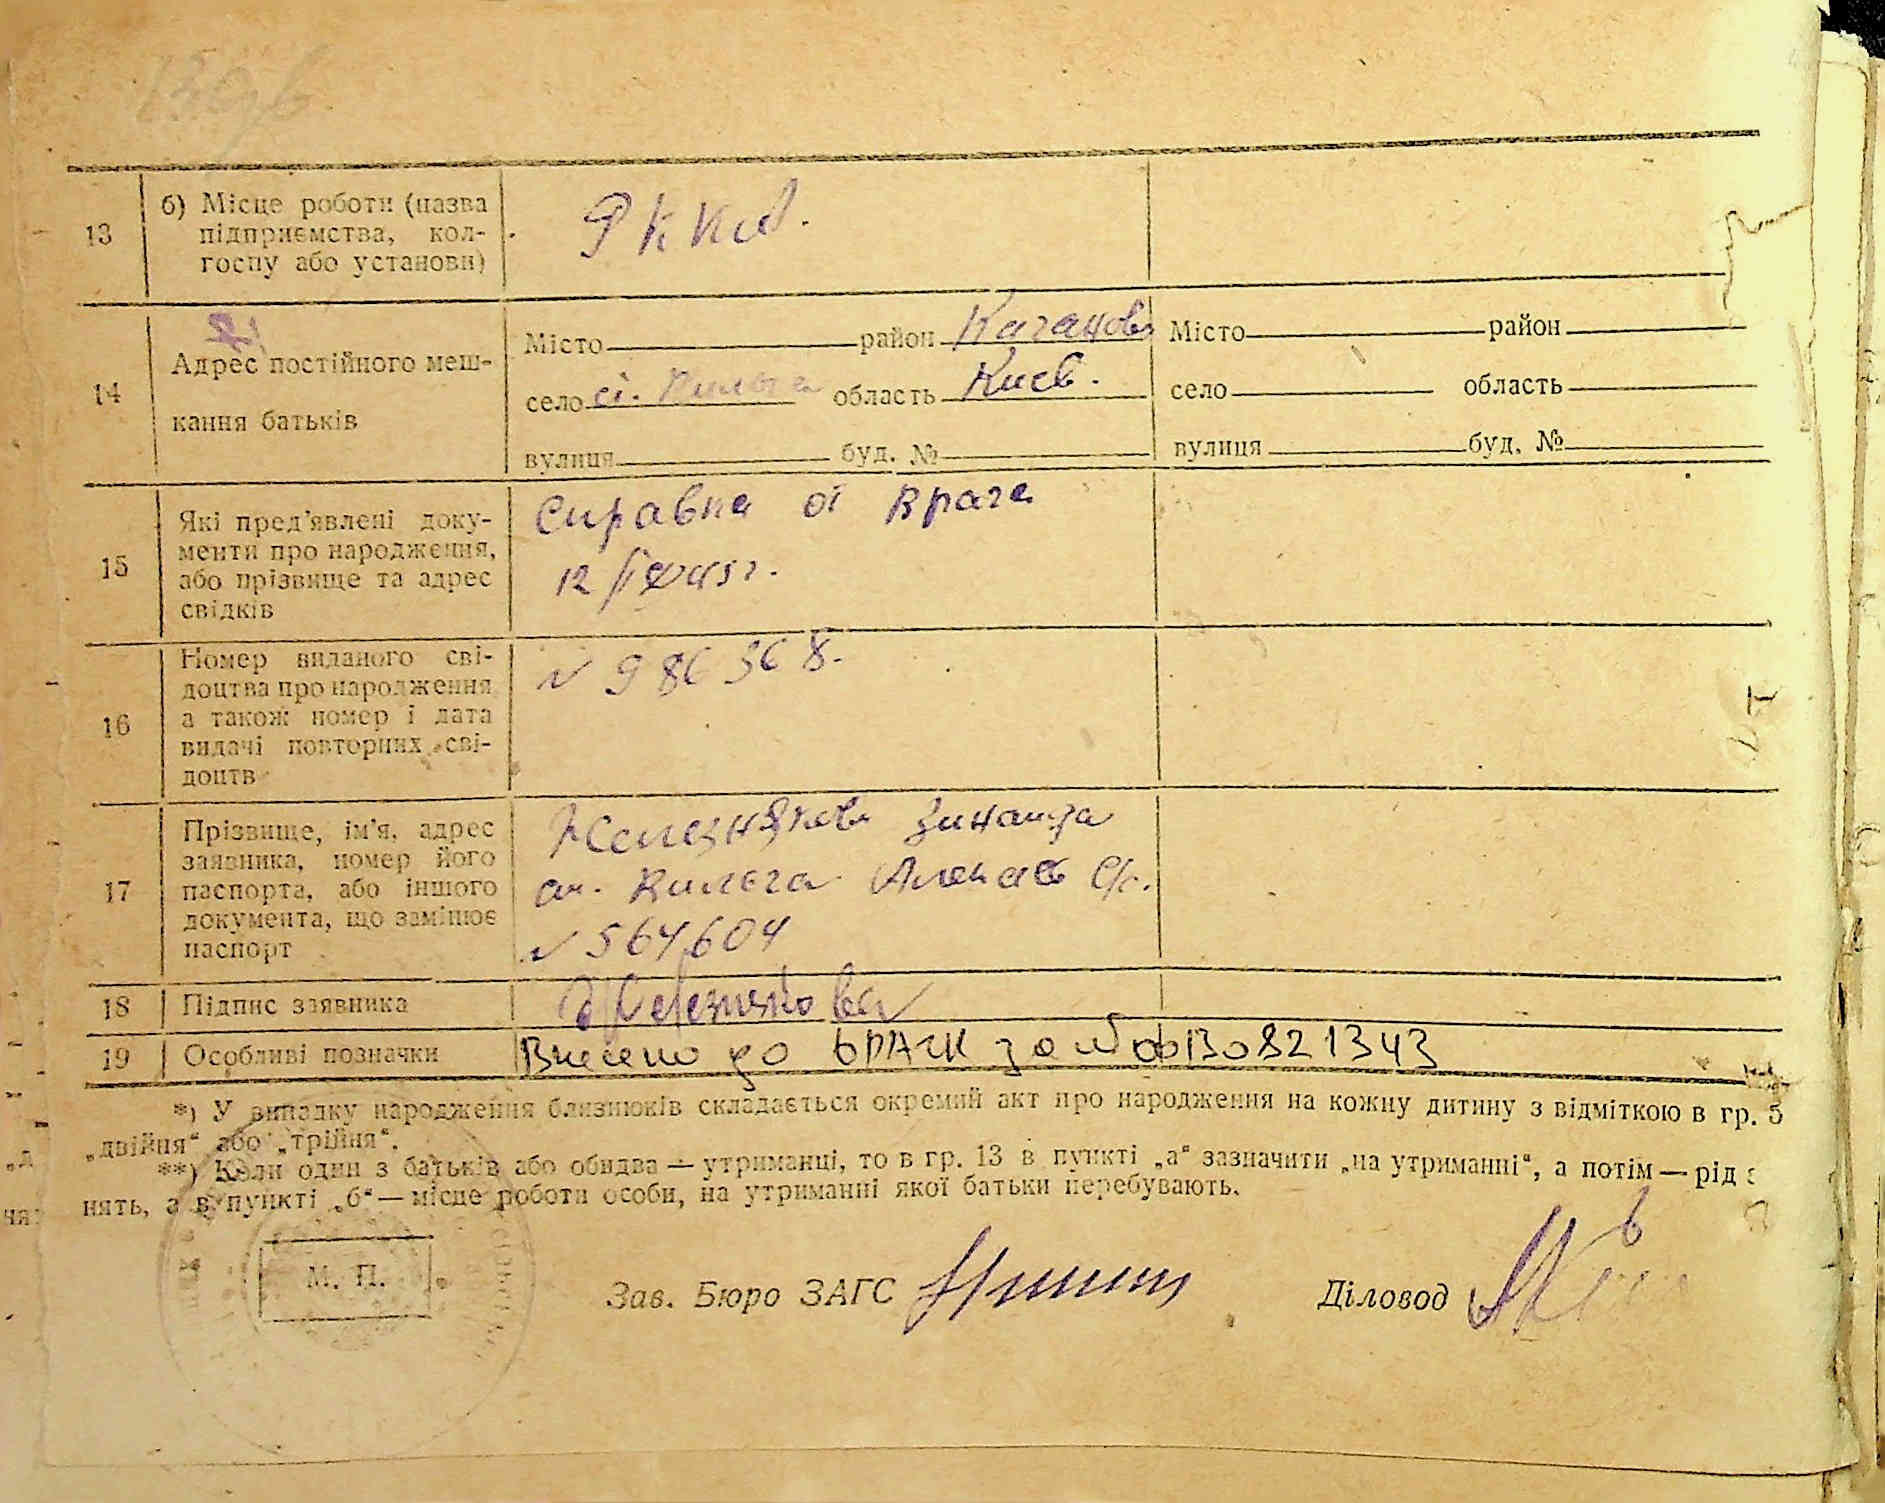 13 б) Місце роботи (назва
підприємства, кол-
госпу або установи)
РККА.
14 Адрес постійного меш-
кання батьків
Місто район Каганов.
село ст. область Киев.
вулиця буд. №
Місто район
село область
вулиця буд. №
15 Які пред'явлені доку-
менти про народження,
або прізвище та адрес
свідків
Справка от врача
12
16 Номер виданого сві-
доцтва про народження
а також номер і дата
видачі повторних сві-
доцтв
№ 986368.
17 Прізвище, ім'я, адрес
заявника, номер його
паспорта, або іншого
документа, що замінює
паспорт
Железнякова Зинаида
с/с.
№ 564604
18 Підпис заявника
Железнякова
19 Особливі позначки
Внесено до ДРАЦС за № 00130821343
*) У випадку народження близнюків складається окремий акт про народження на кожну дитину з відміткою в гр. 5
„двійня“ або „трійня“.
**) Коли один з батьків або обидва — утриманці, то в гр. 13 в пункті „а“ зазначити „на утриманні“, а потім — рід з
нять, а в пункті „б“ — місце роботи особи, на утриманні якої батьки перебувають.
М. П.
Зав. Бюро ЗАГС
Діловод